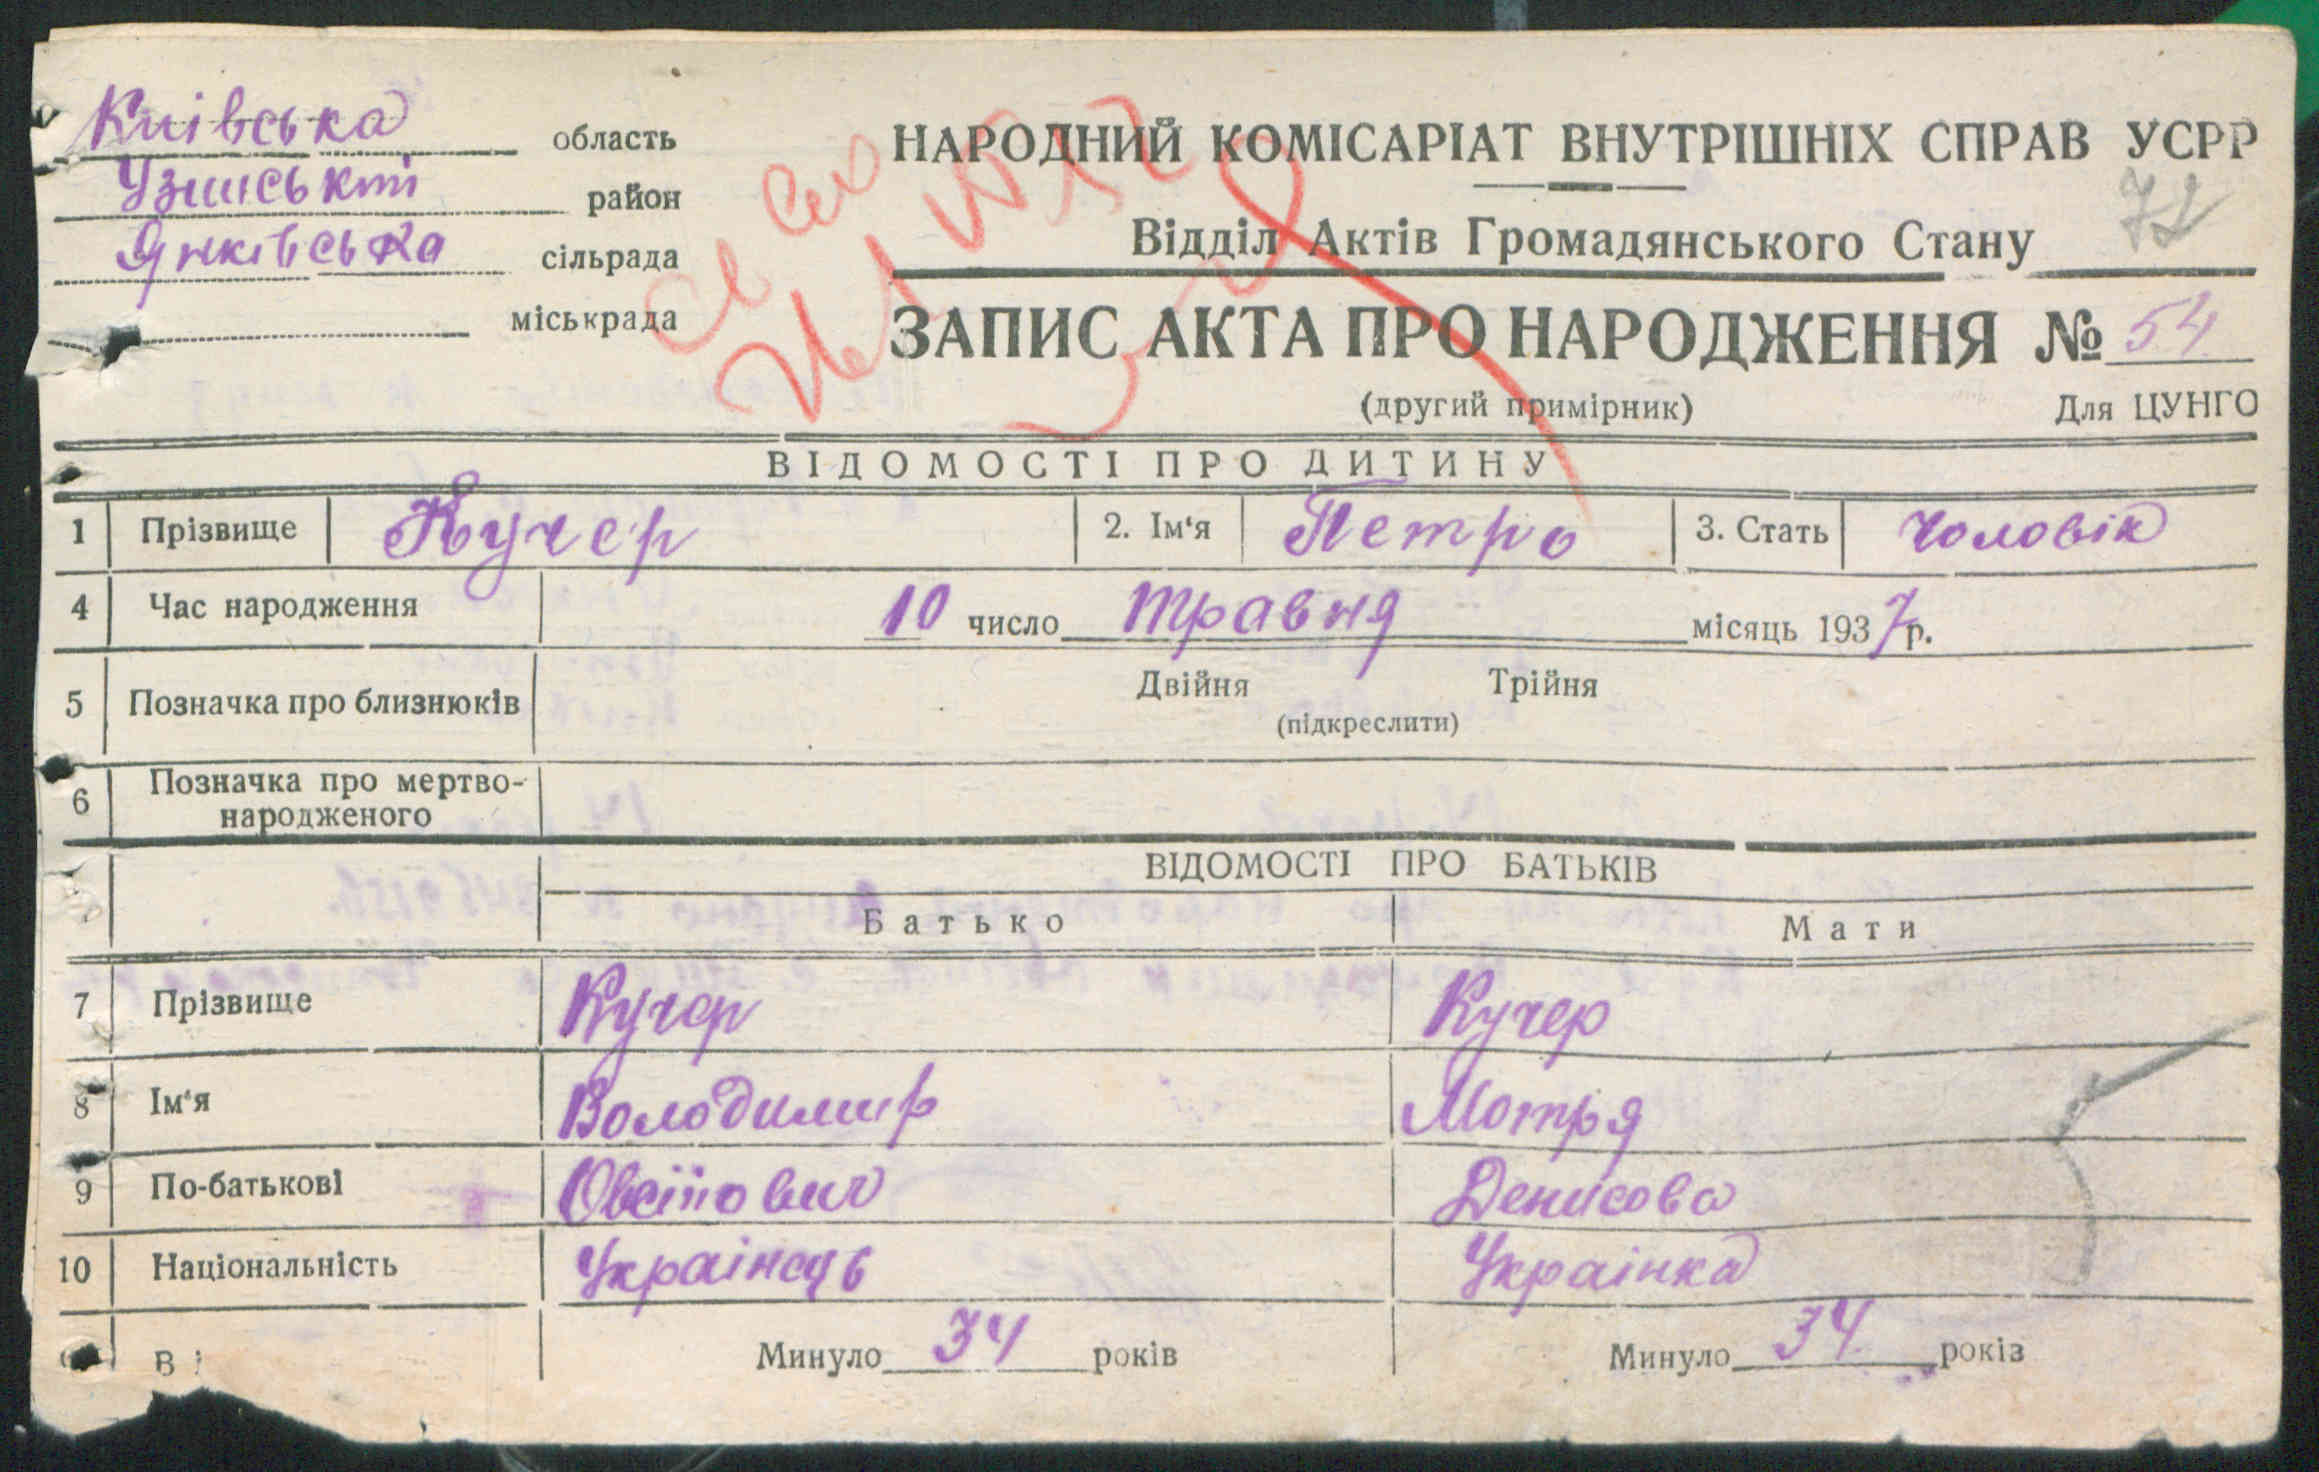 Київська область
Узинський район
Янківська сільрада
міськрада
НАРОДНИЙ КОМІСАРІАТ ВНУТРІШНІХ СПРАВ УСРР
72
Відділ Актів Громадянського Стану
ЗАПИС АКТА ПРО НАРОДЖЕННЯ № 54.
(другий примірник) Для ЦУНГО
ВІДОМОСТІ ПРО ДИТИНУ
1 Прізвище Кучер 2. Ім‘я Петро 3. Стать Чоловік
4 Час народження 10 число травня місяць 1937 р.
5 Позначка про близнюків Двійня Трійня
(підкреслити)
6 Позначка про мертво-
народженого
ВІДОМОСТІ ПРО БАТЬКІВ
Батько Мати
7 Прізвище Кучер Кучер
8 Ім‘я Володимир Мотря
9 По-батькові Овсійович Денисова
10 Національність Українець Українка
В і Минуло 34 років Минуло 34 років